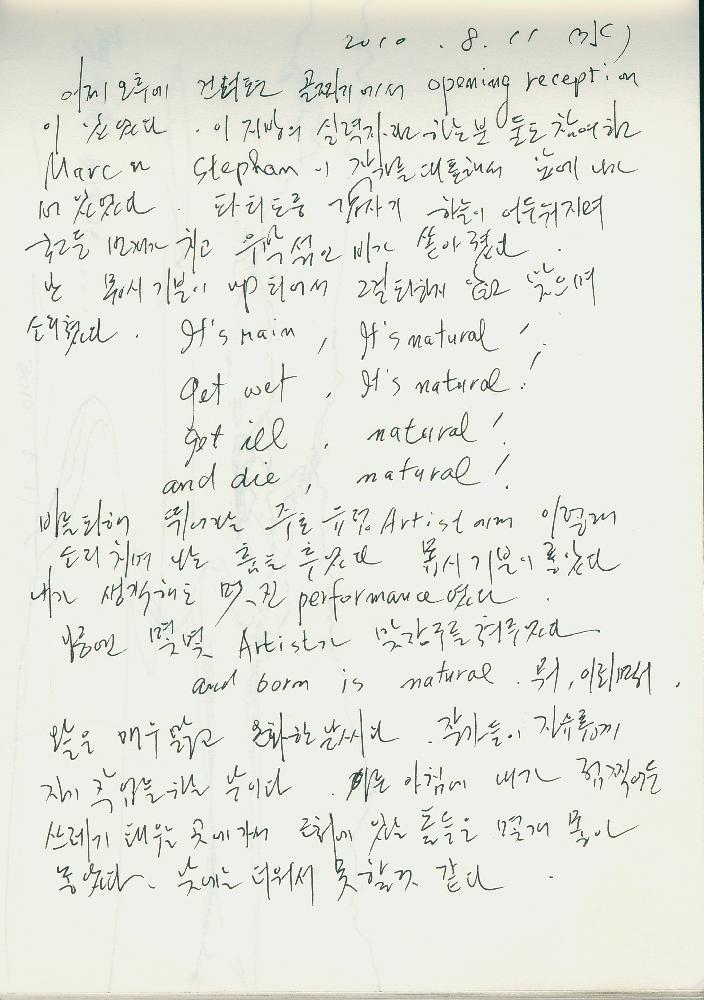 2010. 8. 11 (水)
어제 오후에 건너편 골짜기에서 opening reception
이 있었다. 이 지방의 실력자라 하는 분들도 참여하고
Marc 과 Stephan이 작가를 대표해서 앞에 나가
서 있었다. 파티도중 갑자기 하늘이 어두워지며
천둥 번개가 치고 우박 섞인 비가 쏟아졌다.
난 몹시 기분이 up 되어서 그걸 피하지 않고 맞으며
소리쳤다. It's rain, It's natural!
get wet, It's natural!
get ill, natural!
and die, natural!
비를 피해 뛰어가는 주로 유럽 Artist에게 이렇게
소리치며 나는 춤을 추었다 몹시 기분이 좋았다
내가 생각해도 멋진 performance였다.
나중엔 몇몇 Artist가 맞장구를 쳐주었다
and born is natural. 뭐, 이러며.
오늘은 매우 맑고 온화한 날씨다. 작가들이 자유롭게
자기 작업을 하는 날이다. 나는 아침에 내가 점찍어둔
쓰레기 태우는 곳에 가서 근처에 있는 돌들을 몇개 모아
놓았다. 낮에는 더워서 못할것 같다.